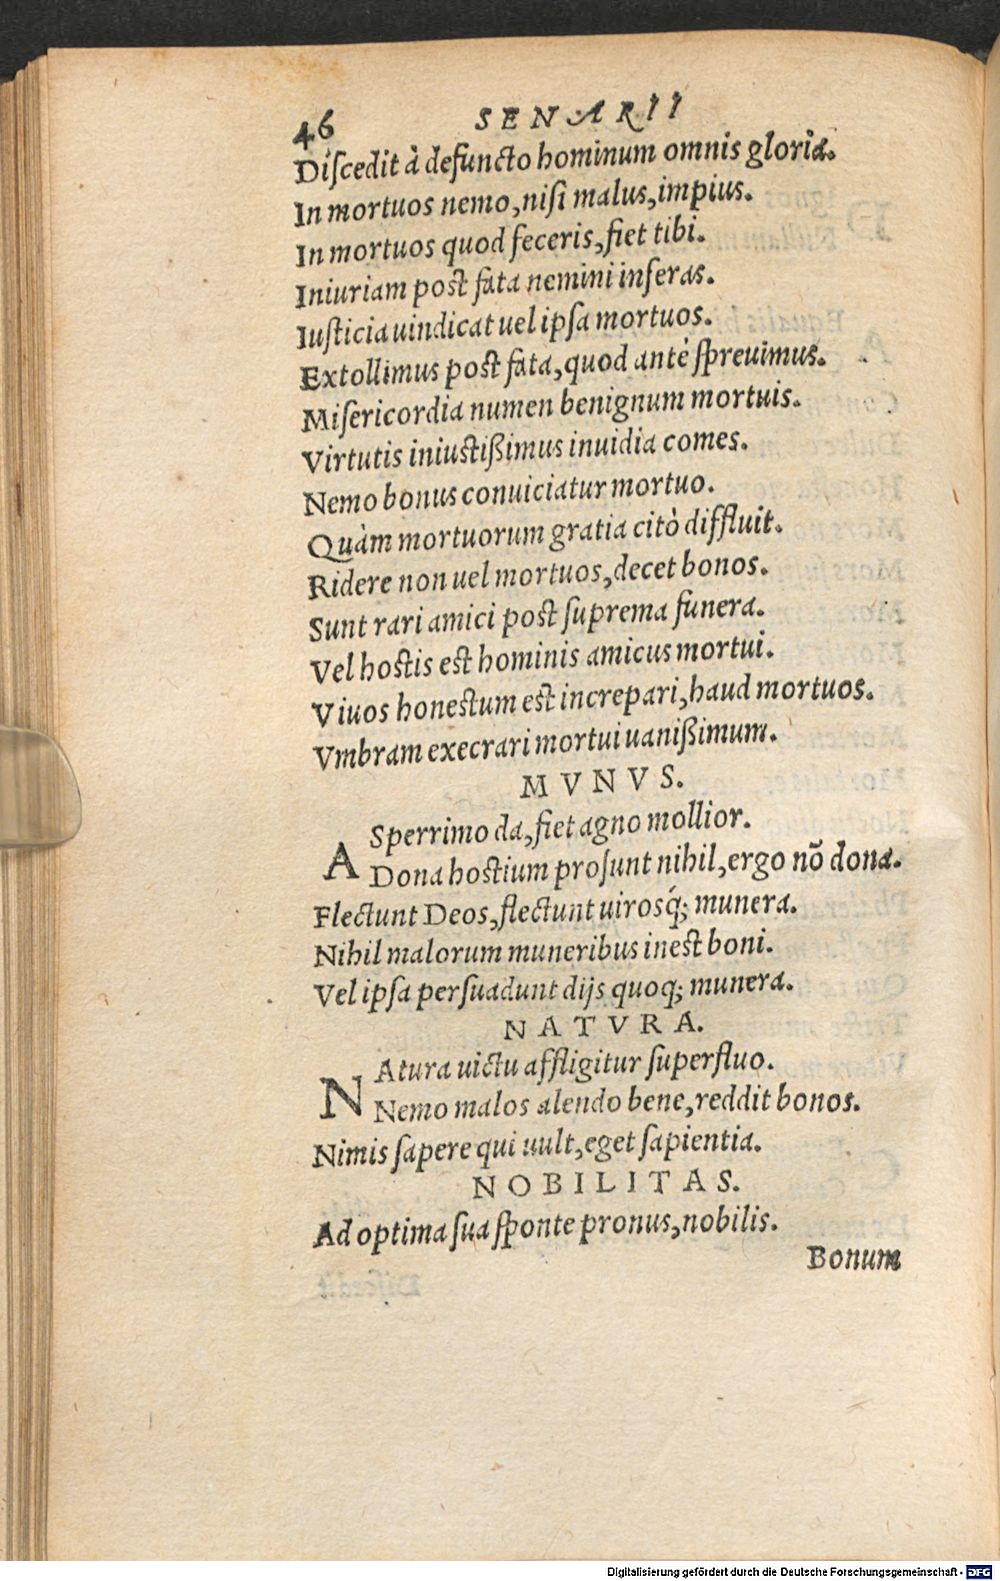 46 SENARII
Diſcedit à defuncto hominum omnis gloria.
In mortuos nemo, niſi malus, impius.
In mortuos quod feceris, fiet tibi.
Iniuriam poſt fata nemini inſeras.
Iuſticia uindicat uel ipſa mortuos.
Extollimus poſt fata, quod antè ſpreuimus.
Miſericordia numen benignum mortuis.
Virtutis iniuſtißimus inuidia comes.
Nemo bonus conuiciatur mortuo.
Quàm mortuorum gratia citò diffluit.
Ridere non uel mortuos, decet bonos.
Sunt rari amici poſt ſuprema funera.
Vel hoſtis eſt hominis amicus mortui.
Viuos honeſtum eſt increpari, haud mortuos.
Vmbram execrari mortui uanißimum.
MVNVS.
ASperrimo da, fiet agno mollior.
Dona hoſtium proſunt nihil, ergo nō dona.
Flectunt Deos, flectunt uirosq́; munera.
Nihil malorum muneribus ineſt boni.
Vel ipſa perſuadunt dijs quoq; munera.
NATVRA.
NAtura uictu affligitur ſuperfluo.
Nemo malos alendo bene, reddit bonos.
Nimis ſapere qui uult, eget ſapientia.
NOBILITAS.
Ad optima ſua ſponte pronus, nobilis.
Bonum
Digitalisierung gefördert durch die Deutsche Forschungsgemeinschaft - DFG